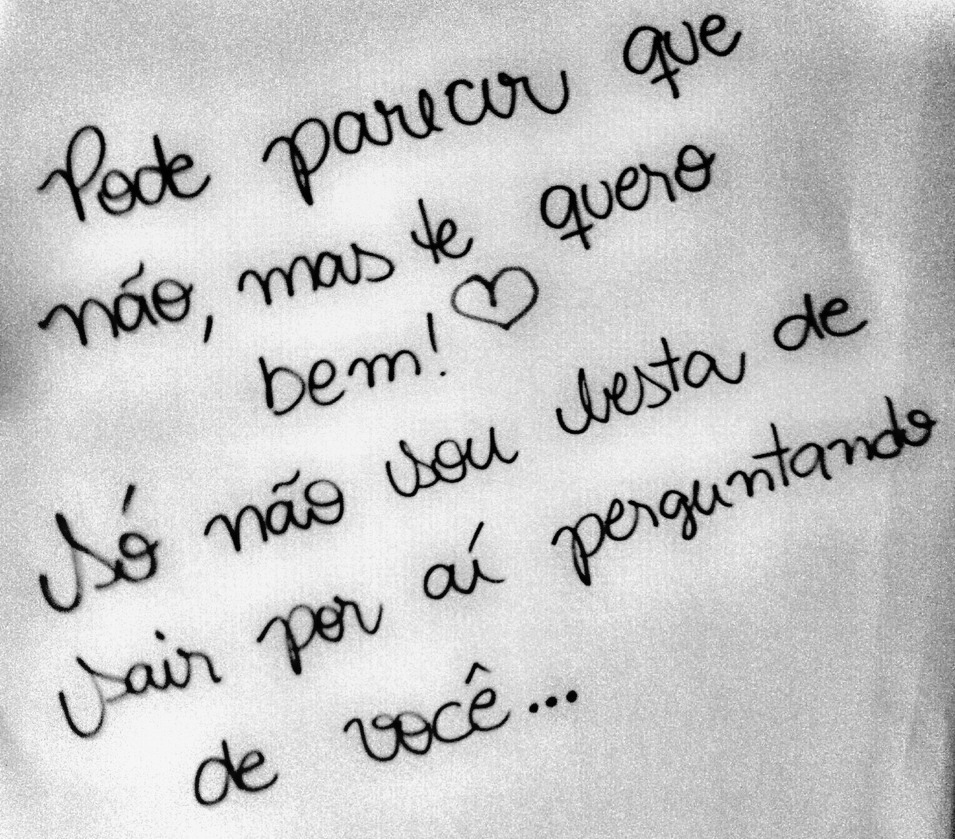 Pode parecer que
não, mas te quero
bem! ♡
Só não sou besta de
sair por aí perguntando
de você...